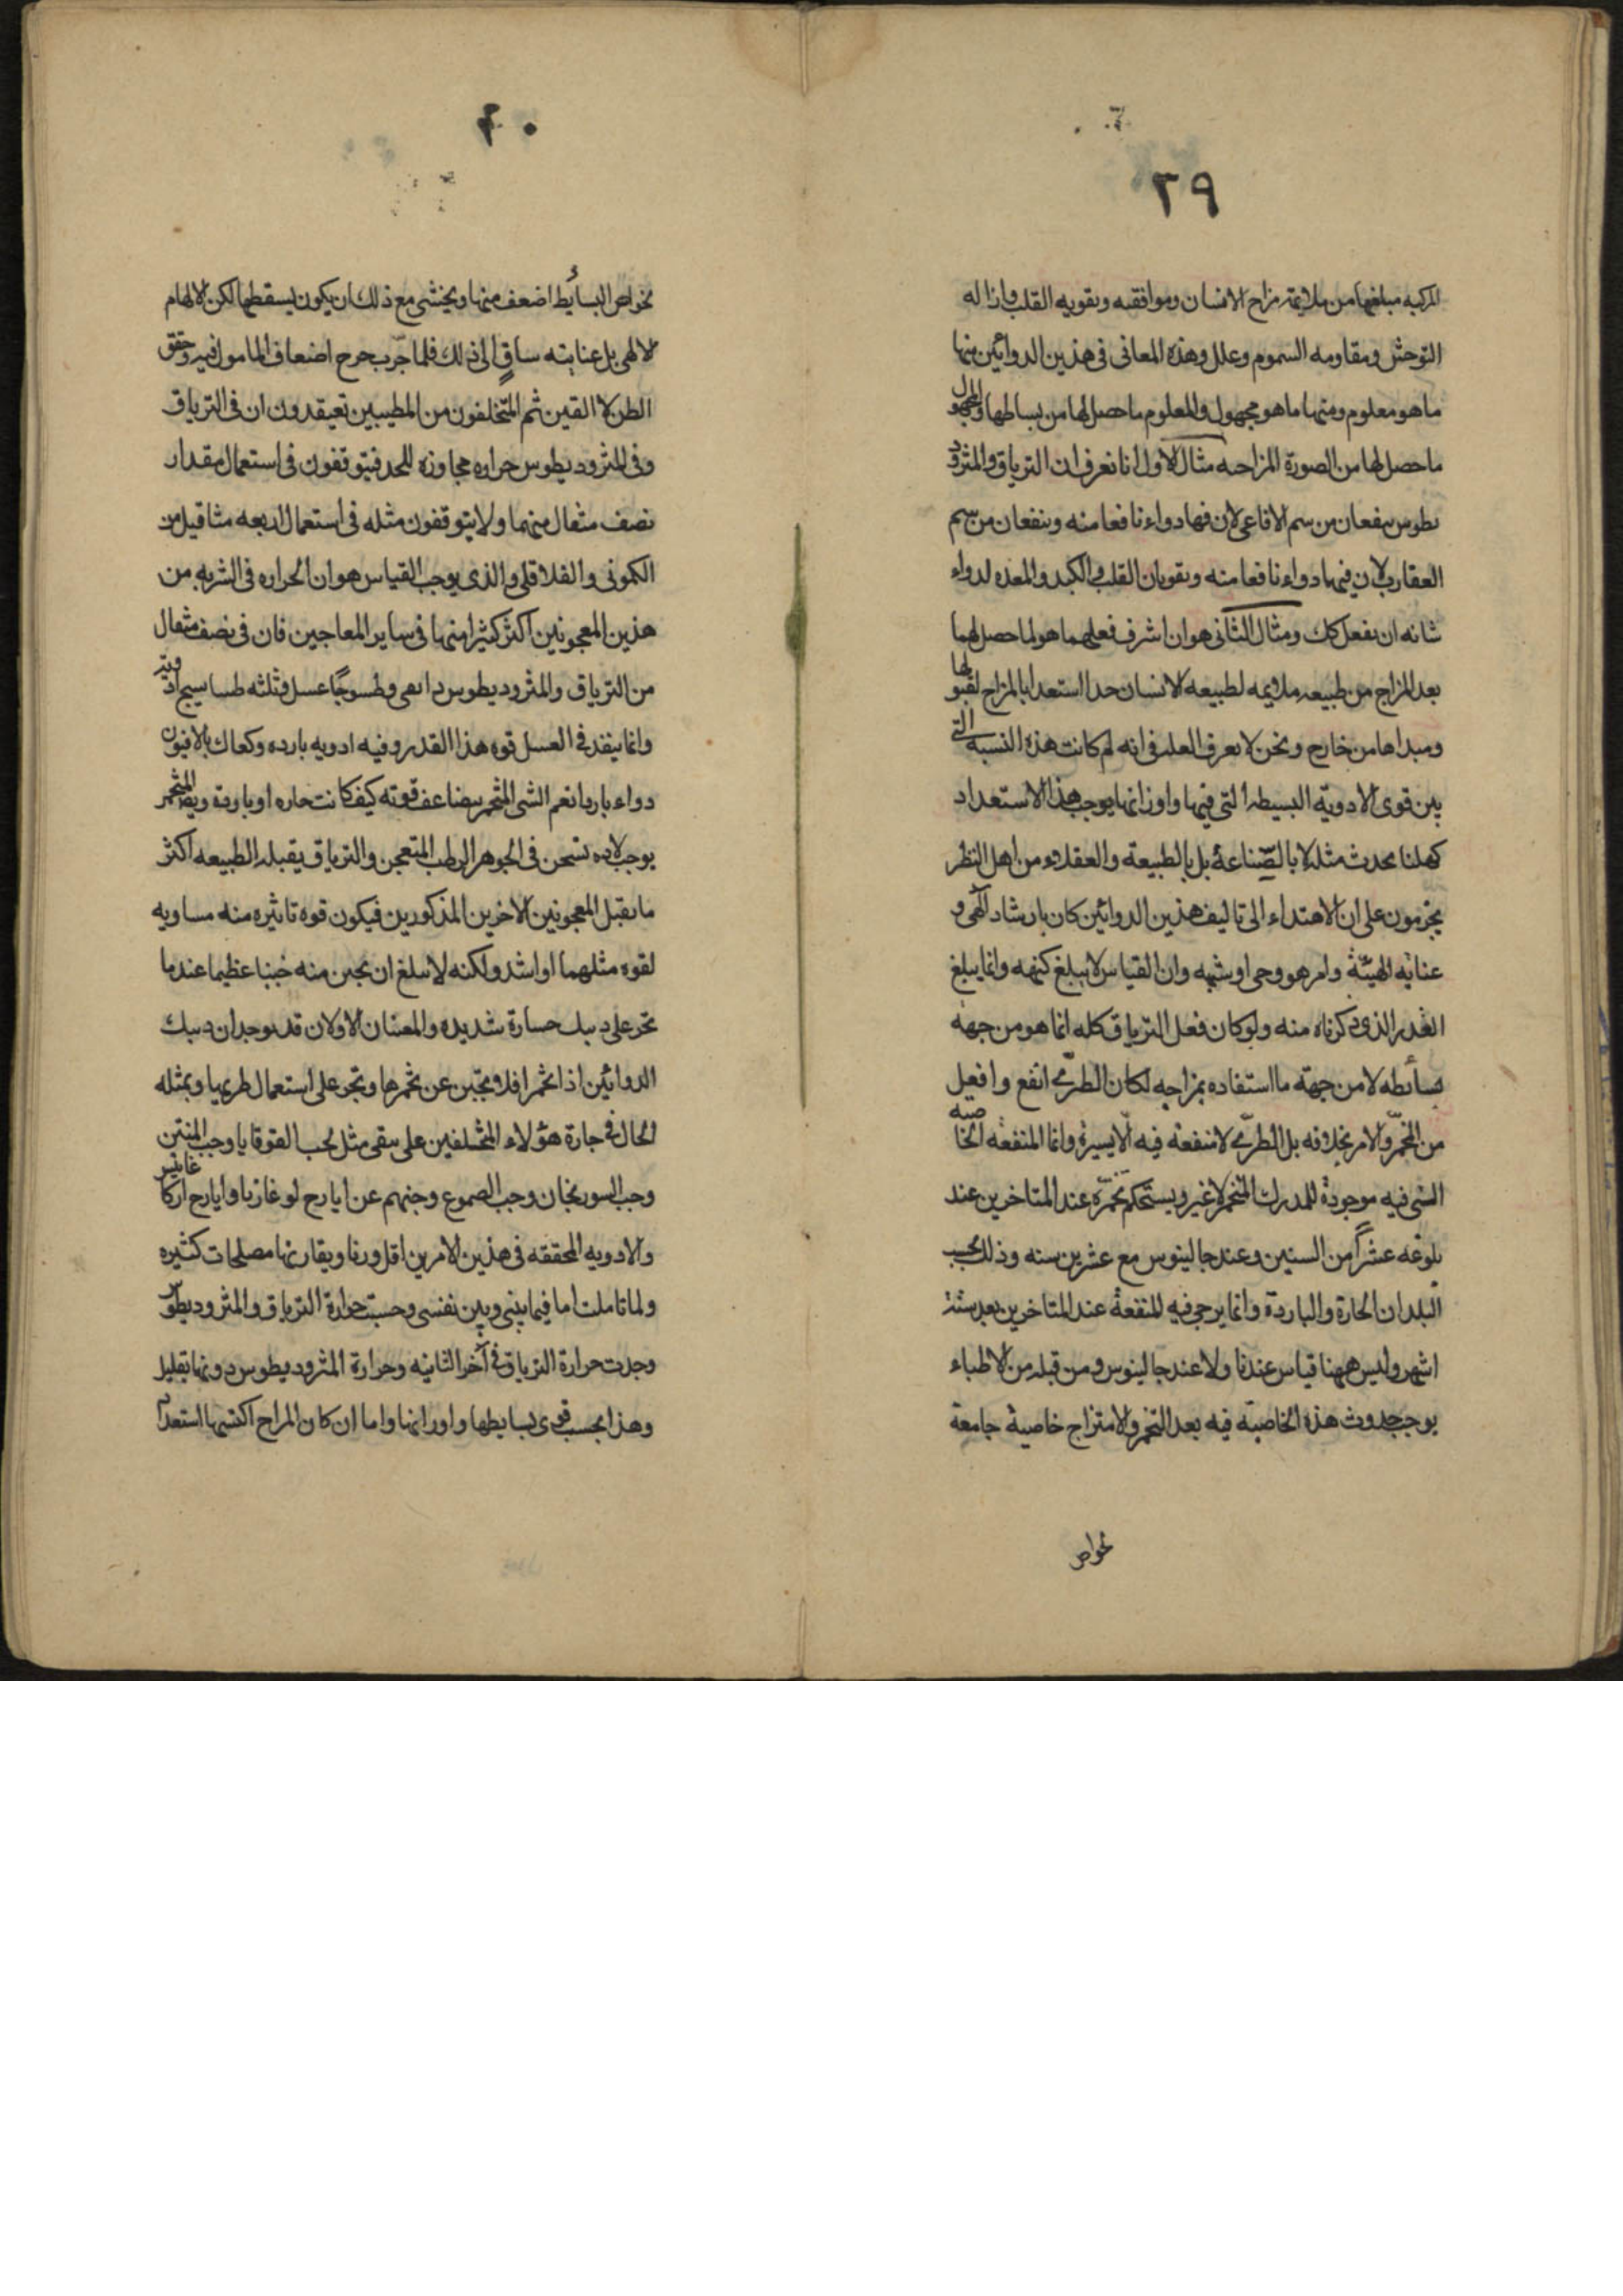 ٢٩
المركبه مبلغها من ملايمة مزاج الانسان وموافقته وتقويه القلب وازاله
التوحش ومقاومه السموم وعلل وهذه المعانى فى هذين الدوائين منها
ما هو معلوم ومنها ما هو مجهول والمعلوم ما حصل لها من بساطها والمجهول
ما حصل لها من الصورة المزاجيه مثال الاول انا نعرف ان الترياق والمثرود
يطوس ينفعان من سم الافاعى لان فيها دواء نافعا منه وينفعان من سم
العقارب لان فيها دواء نافعا منه ويقويان القلب والكبد والمعده لدواء
شانه ان يفعل كك ومثال الثانى هو ان اشرف فعلهما هو لما حصل لهما
بعد المزاج من طبيعه ملايمه لطبيعه الانسان جدا استعدا بالمزاج لقبولها
ومبداها من خارج ونحن لا نعرف العله فى انه لم كانت هذه النسبه التى
بين قوى الادوية البسيطه التى فيها واوزانها يوجب هذا الاستعداد
كهلنا يحدث مثله لا بالصّناعة بل بالطبيعة والعقلاء من اهل النظر
يجزمون على ان الاهتداء الى تاليف هذين الدوائين كان بارشاد الٓهى و
عنايه الهيّة وامر هو وحى او شبهه وان القياس لا يبلغ كنهه وانما يبلغ
القدر الذى ذكرناه منه ولو كان فعل الترياق كله انما هو من جهة
بسائطه لا من جهة ما استفاده بمزاجه لكان الطرىّ انفع وافعل
من المخمّر والامر بخلافه بل الطرىّ لا منفعة فيه الّا يسيرة وانما المنفعة الخاصيه
التى فيه موجودة للمدرك المتخمر لا غير ويستحكم تخمّره عند المتاخرين عند
بلوغه عشراً من السنين وعند جالينوس مع عشرين سنه وذلك بحسب
البلدان الحارة والباردة وانما يرجى فيه المنفعة عند المتاخرين بعد ستة
اشهر وليس ههنا قياس عندنا ولا عند جالينوس ومن قبله من الاطباء
يوجب حدوث هذه الخاصية فيه بعد التخمر والامتزاج خاصية جامعة
خواص
٤٠
خواص البسائط اضعف منها ويخشى مع ذلك ان يكون يسقطها لكن الالهام
الالهى بل عنايته ساقٍ الى ذلك فلما جرّب خرج اضعاف المامول فيه وحقق
الظن لا القين ثم المتخلفون من المطببين تعيقدون ان فى الترياق
وفى المثروديطوس حراره مجاوزه للحد فيتوقفون فى استعمال مقدار
نصف مثقال منهما ولا يتوقفون مثله فى استعمال اربعه مثاقيل من
الكمونى والفلافلى والذى يوجب القياس هو ان الحراره فى الشربه من
هذين المعجونين اكثر كثيرا منها فى ساير المعاجين فان فى نصف مثقال
من الترياق والمثروديطوس وطسوجًا عسل وثلثه طساسيج ادويه
وانما ينفذ فى العسل قوه هذا القدر وفيه ادويه بارده وكفاك بالافيون
دواء باردا نعم الشى المتخمر يتضاعف قوته كيف كانت حاره او باردة
يوجب لاده تسخن فى الجوهر الرطب المتعجن والترياق يقبله الطبيعه اكثر
ما يقبل المعجونين الاخرين المذكورين فيكون قوه تاثيره منه مساويه
لقوه مثلهما او اشد ولكنه لا يبلغ ان يجبن منه جبنا عظيما عندما
تجر على ذينك جسارة شديده والمعنيان الاولان قد يوجدان ذينك
الدوائين اذا تخمر افلا ويجبن عن تخمرها وتجر على استعمال طريها وبمثله
الحال فى جارة هؤلاء المتخلفين على سقى مثل لحب القوقايا وحب المنتن
وحب السورنجان وحب الصموغ وجبنهم عن ايارج لوغاذيا وايارج اركاغانيس
والادويه المحققه فى هذين الامرين اقل وزنا ويقارنها مصلحات كثيره
ولما تاملت اما فيما بينى وبين نفسى وحسبت حرارة الترياق والمثروديطوس
وجدت حرارة الترياق فى آخر الثانيه وحرارة المثروديطوس دونها بقليل
وهذا بحسب قوى بسايطها واوزانها واما ان كان المزاج اكتسبها استعدا